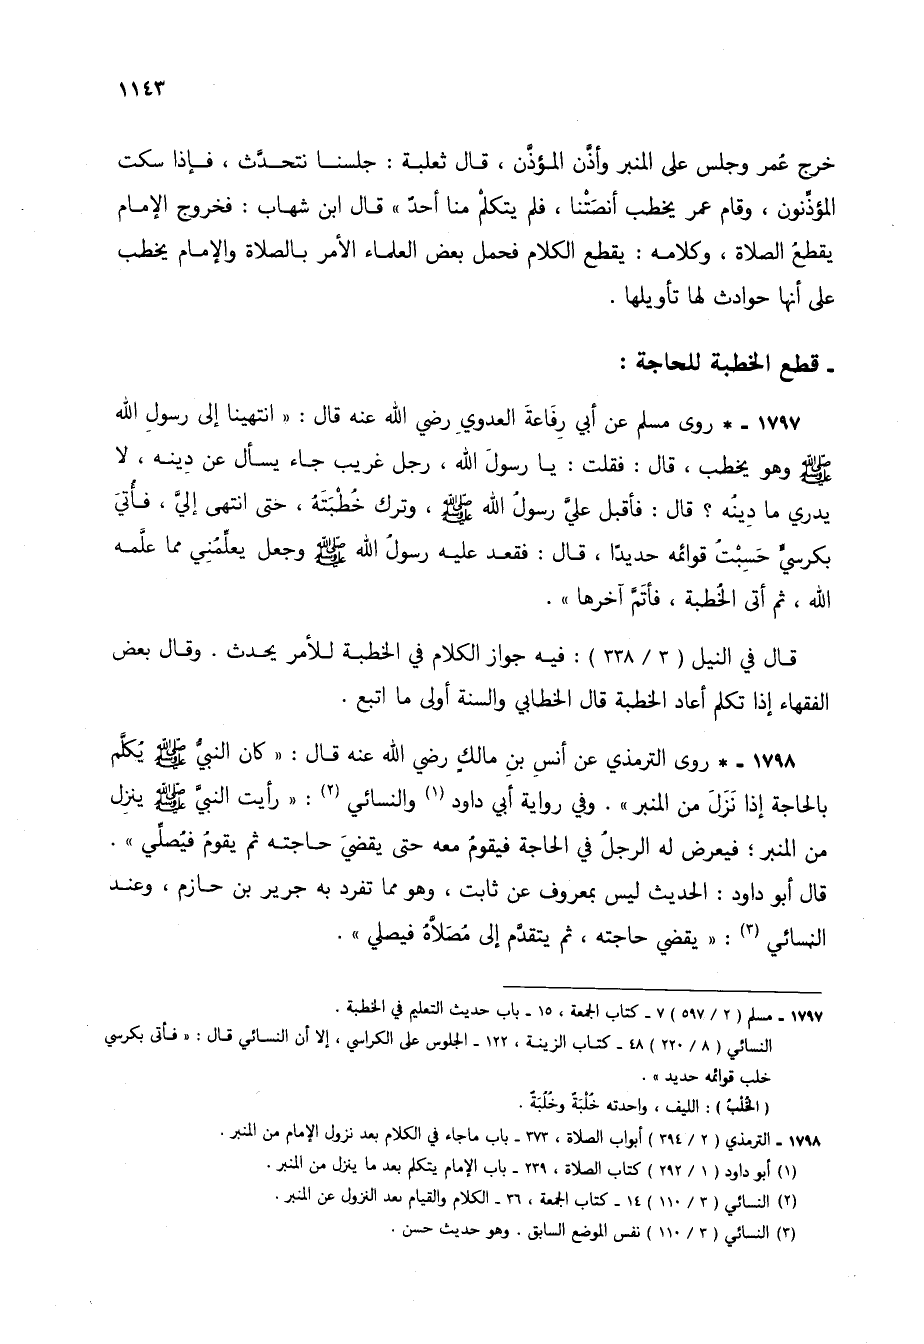 ١١٤٣
خرج عُمر وجلس على المنبر وأذَّن المـؤذَّن ، قـال ثعلبـة : جلسنـا نتحـدَّث ، فـإذا سكت
المؤذِّنون ، وقام عمر يخطب أنصَتْنا ، فلم يتكلمْ منا أحدٌ » قـال ابن شهـاب : فخروج الإمـام
يقطعُ الصلاة ، وكلامـه : يقطع الكلام فحمل بعض العلمـاء الأمر بـالصلاة والإمـام يخطب
على أنها حوادث لها تأويلها .
ـ قطع الخطبة للحاجة :
١٧٩٧ ـ * روى مسلم عن أبي رِفَاعةَ العدوي رضي الله عنه قال : « انتهينا إلى رسول الله
ﷺ وهو يخطب ، قال : فقلت : يـا رسولَ الله ، رجل غريب جـاء يسأل عن دينـه ، لا
يدري ما دينُه ؟ قال : فأقبل عليَّ رسولُ الله ﷺ ، وترك خُطْبَتَهُ ، حتى انتهى إليَّ ، فـأُتيَ
بكرسيٍّ حَسِبْتُ قوائمه حديدًا ، قـال : فقعـد عليـه رسولُ الله ﷺ وجعل يعلِّمُني مما علَّمـه
الله ، ثم أتى الخُطبة ، فأتَمَّ آخرها » .
قـال في النيل ( ٣ / ٣٣٨ ) : فيـه جواز الكلام في الخطبـة لـلأمر يحـدث . وقـال بعض
الفقهاء إذا تكلم أعاد الخطبة قال الخطابي والسنة أولى ما اتبع .
١٧٩٨ ـ * روى الترمذي عن أنس بنِ مالكٍ رضي الله عنه قـال : « كان النبيُّ ﷺ يُكلَّم
بالحاجة إذا نَزَلَ من المنبر » . وفي رواية أبي داود (١) والنسائي (٢) : « رأيت النبيَّ ﷺ ينزل
من المنبر ؛ فيعرض له الرجلُ في الحاجة فيقومُ معه حتى يقضيَ حـاجتـه ثم يقومُ فيُصلِّي » .
قال أبو داود : الحديث ليس بمعروف عن ثابت ، وهو مما تفرد به جرير بن حـازم ، وعنـد
النسائي (٣) : « يقضي حاجته ، ثم يتقدَّم إلى مُصَلاَّهُ فيصلي » .
١٧٩٧ ـ مسلم ( ٢ / ٥٩٧ ) ٧ ـ كتاب الجمعة ، ١٥ ـ باب حديث التعليم في الخطبة .
النسائي ( ٨ / ٢٢٠ ) ٤٨ ـ كتـاب الزينـة ، ١٢٢ ـ الجلوس على الكراسي ، إلا أن النسـائي قـال : « فـأتى بكرسي
خلب قوائمه حديد » .
( الخُلْبُ ) : الليف ، واحدته خُلْبَةٌ وخُلُبَةٌ .
١٧٩٨ ـ الترمذي ( ٢ / ٣٩٤ ) أبواب الصلاة ، ٣٧٣ ـ باب ماجاء في الكلام بعد نزول الإمام من المنبر .
(١) أبو داود ( ١ / ٢٩٢ ) كتاب الصلاة ، ٢٣٩ ـ باب الإمام يتكلم بعد ما ينزل من المنبر .
(٢) النسائي ( ٣ / ١١٠ ) ١٤ ـ كتاب الجمعة ، ٣٦ ـ الكلام والقيام بعد النزول عن المنبر .
(٣) النسائي ( ٣ / ١١٠ ) نفس الموضع السابق . وهو حديث حسن .